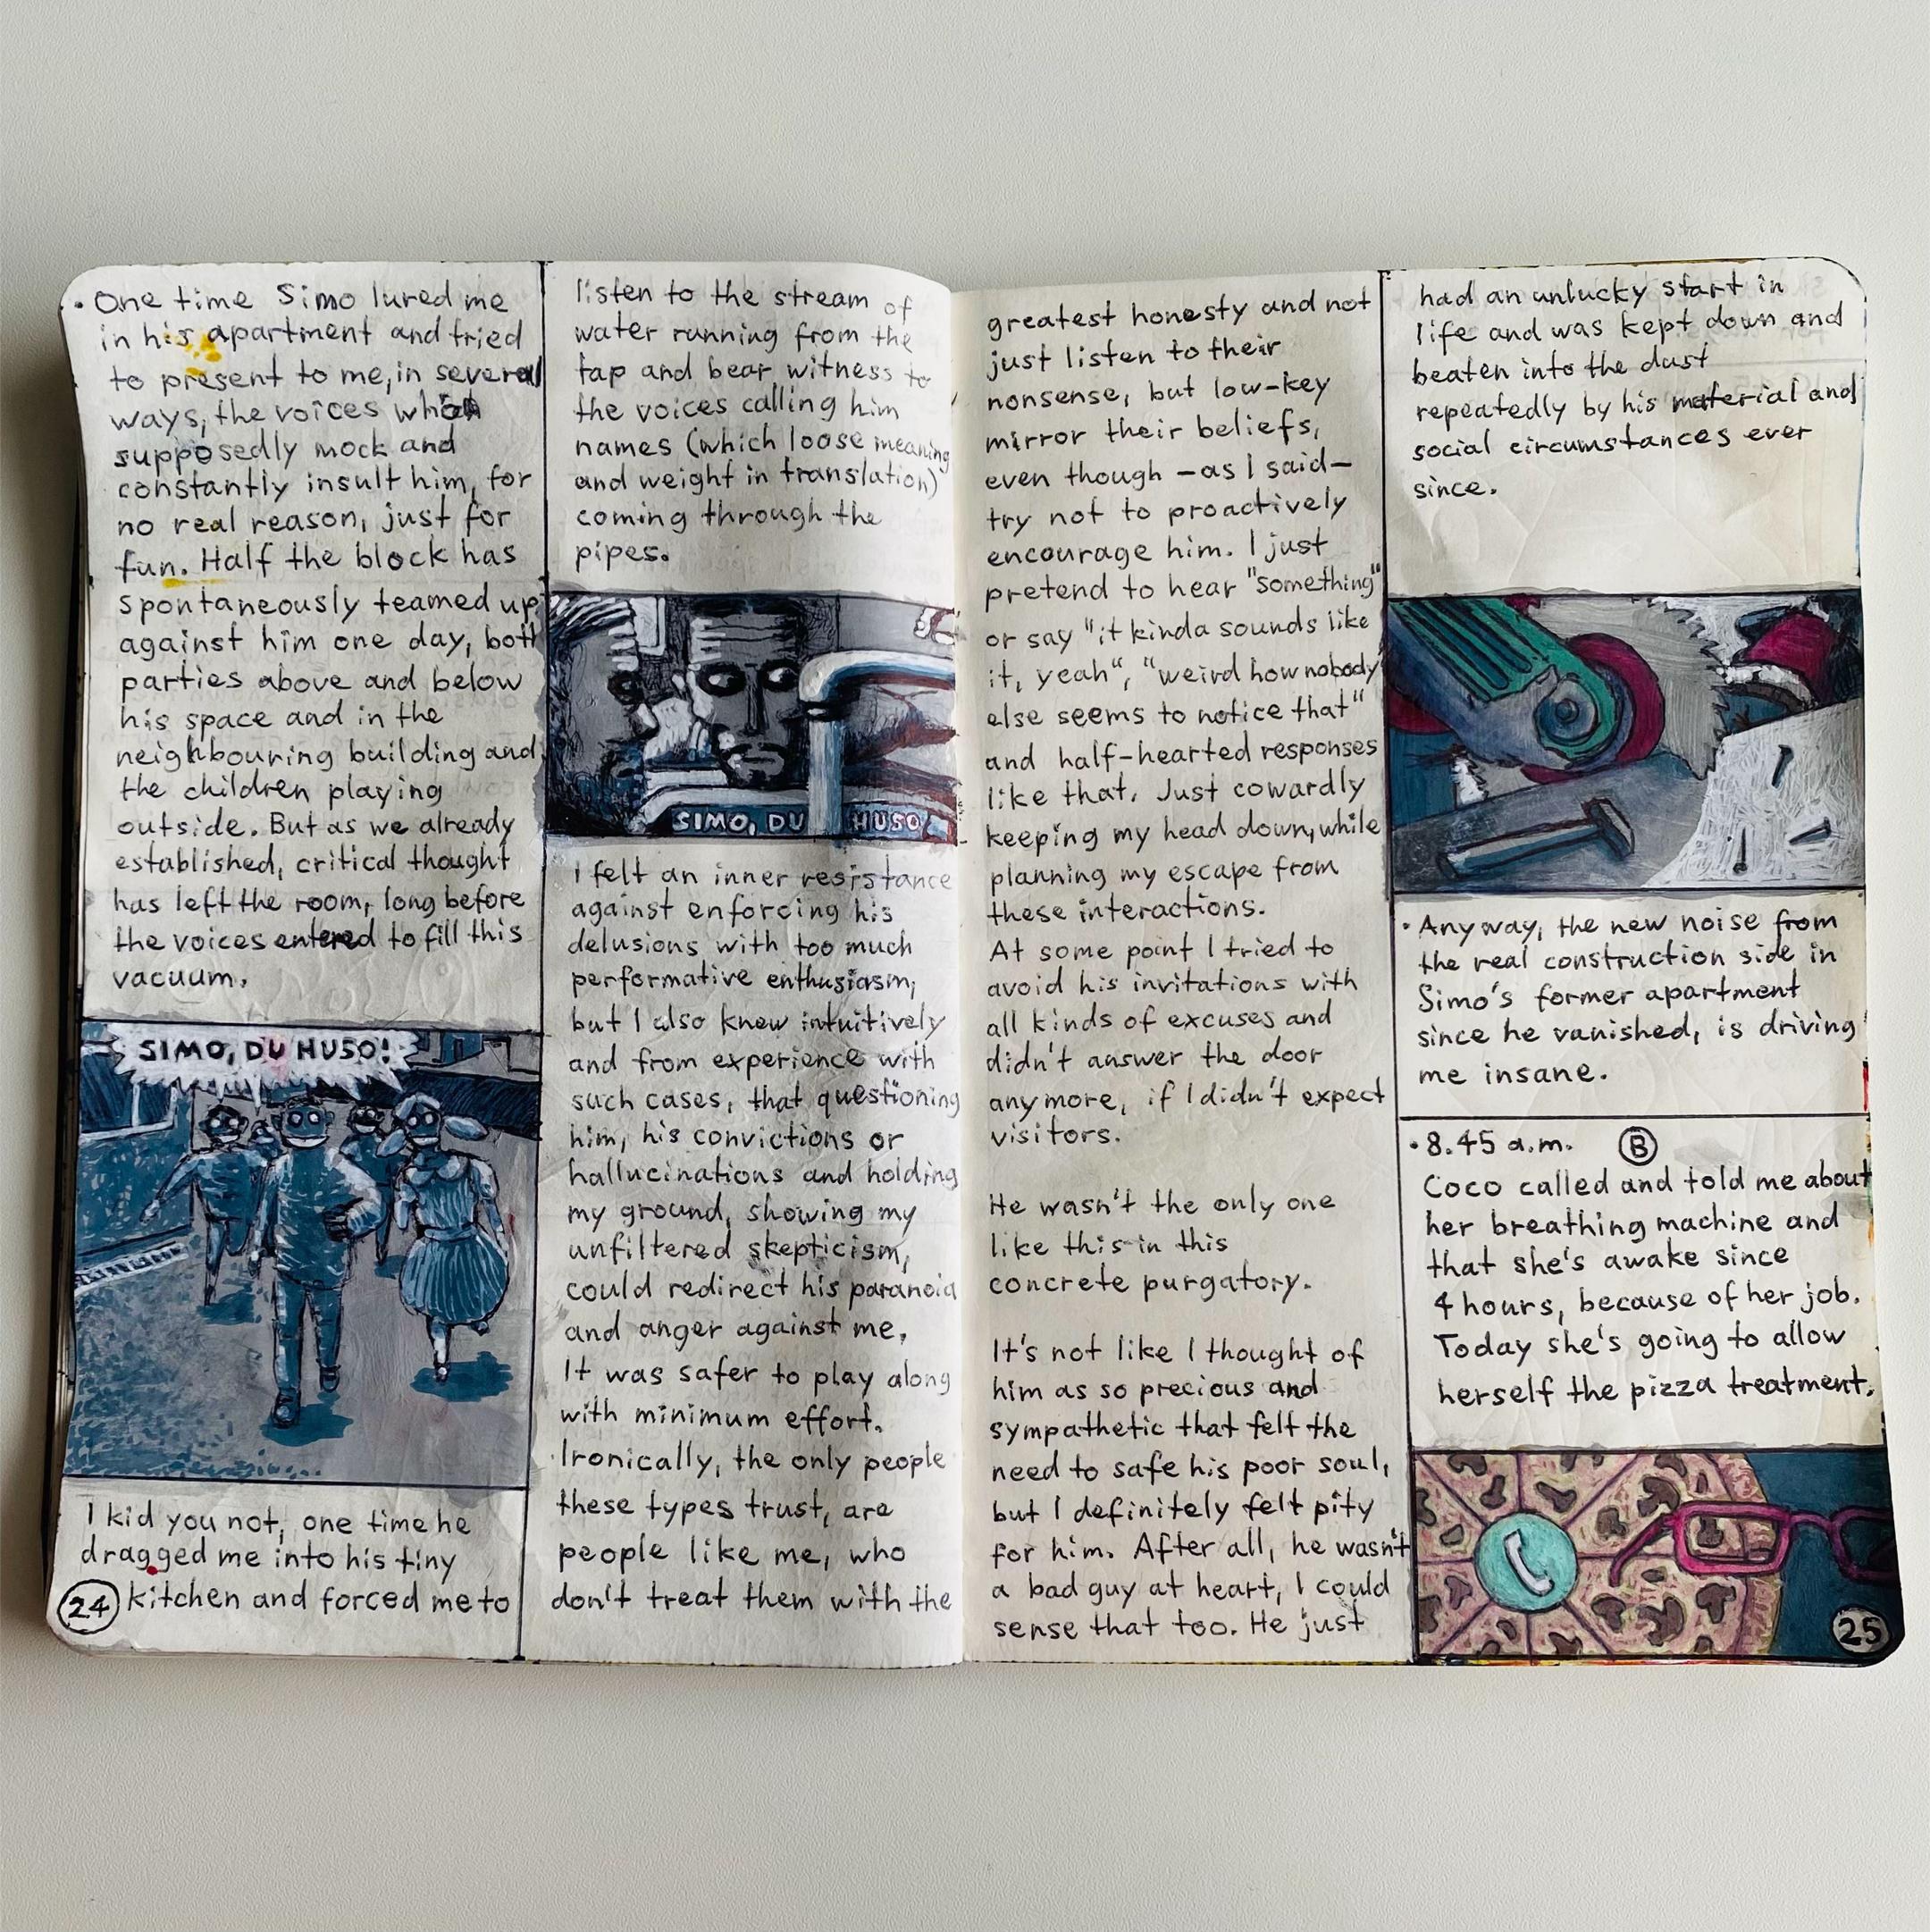 • One time Simo lured me
in his apartment and tried
to present to me, in several
ways, the voices which
supposedly mock and
constantly insult him, for
no real reason, just for
fun. Half the block has
spontaneously teamed up
against him one day, both
parties above and below
his space and in the
neighbouring building and
the children playing
outside. But as we already
established, critical thought
has left the room, long before
the voices entered to fill this
vacuum.
SIMO, DU HUSO!
I kid you not, one time he
dragged me into his tiny
kitchen and forced me to
24
listen to the stream of
water running from the
tap and bear witness to
the voices calling him
names (which loose meaning
and weight in translation)
coming through the
pipes.
SIMO, DU HUSO
I felt an inner resistance
against enforcing his
delusions with too much
performative enthusiasm,
but I also knew intuitively
and from experience with
such cases, that questioning
him, his convictions or
hallucinations and holding
my ground, showing my
unfiltered skepticism,
could redirect his paranoia
and anger against me.
It was safer to play along
with minimum effort.
Ironically, the only people
these types trust, are
people like me, who
don't treat them with the
greatest honesty and not
just listen to their
nonsense, but low-key
mirror their beliefs,
even though – as I said –
try not to proactively
encourage him. I just
pretend to hear "something"
or say "it kinda sounds like
it, yeah", "weird how nobody
else seems to notice that"
and half-hearted responses
like that. Just cowardly
keeping my head down, while
planning my escape from
these interactions.
At some point I tried to
avoid his invitations with
all kinds of excuses and
didn't answer the door
anymore, if I didn't expect
visitors.
He wasn't the only one
like this in this
concrete purgatory.
It's not like I thought of
him as so precious and
sympathetic that felt the
need to safe his poor soul,
but I definitely felt pity
for him. After all, he wasn't
a bad guy at heart, I could
sense that too. He just
had an unlucky start in
life and was kept down and
beaten into the dust
repeatedly by his material and
social circumstances ever
since.
• Anyway, the new noise from
the real construction side in
Simo's former apartment
since he vanished, is driving
me insane.
• 8.45 a.m. B
Coco called and told me about
her breathing machine and
that she's awake since
4 hours, because of her job.
Today she's going to allow
herself the pizza treatment.
25